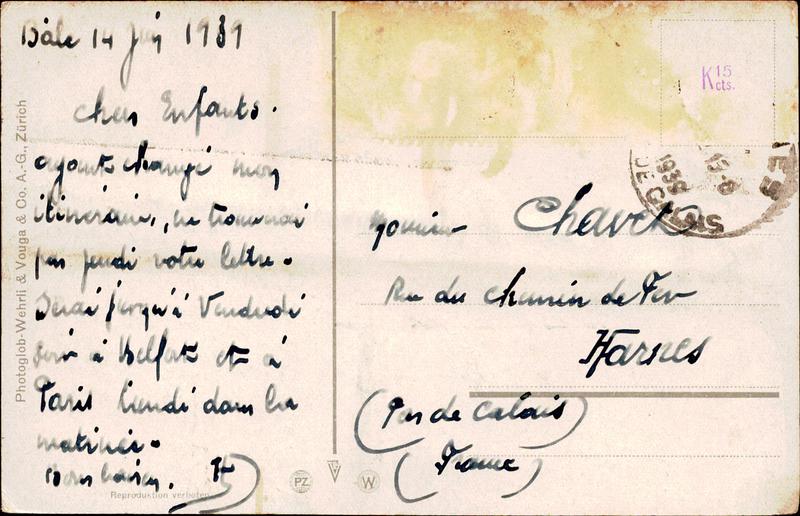 Bâle 14 Juin 1939
Chers Enfants.
ayant changé mon
itinéraire, ne trouverai
pas jeudi votre lettre.
Serai jusqu'à Vendredi
soir à Belfort et à
Paris lundi dans la
matinée.
Bons baisers.
Reproduktion verboten
Photoglob-Wehrli & Vouga & Co. A.-G., Zürich
PZ
W
K 15
cts.
1939
Monsieur Chavet
Rue du Chemin de Fer
Harnes
(Pas de Calais)
(France)